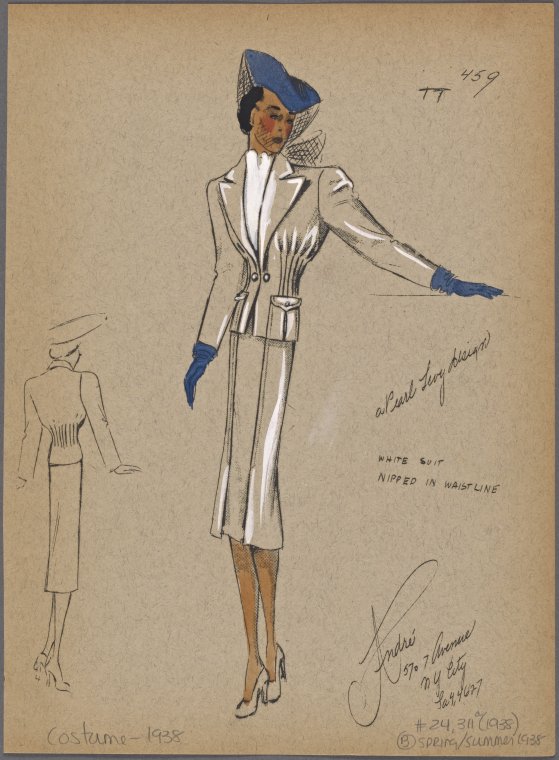 459
a Pearl Levy Design
WHITE SUIT
NIPPED IN WAISTLINE
André
570 7 Avenue
N Y City
costume - 1938
#24,311 (1938)
B spring/summer 1938